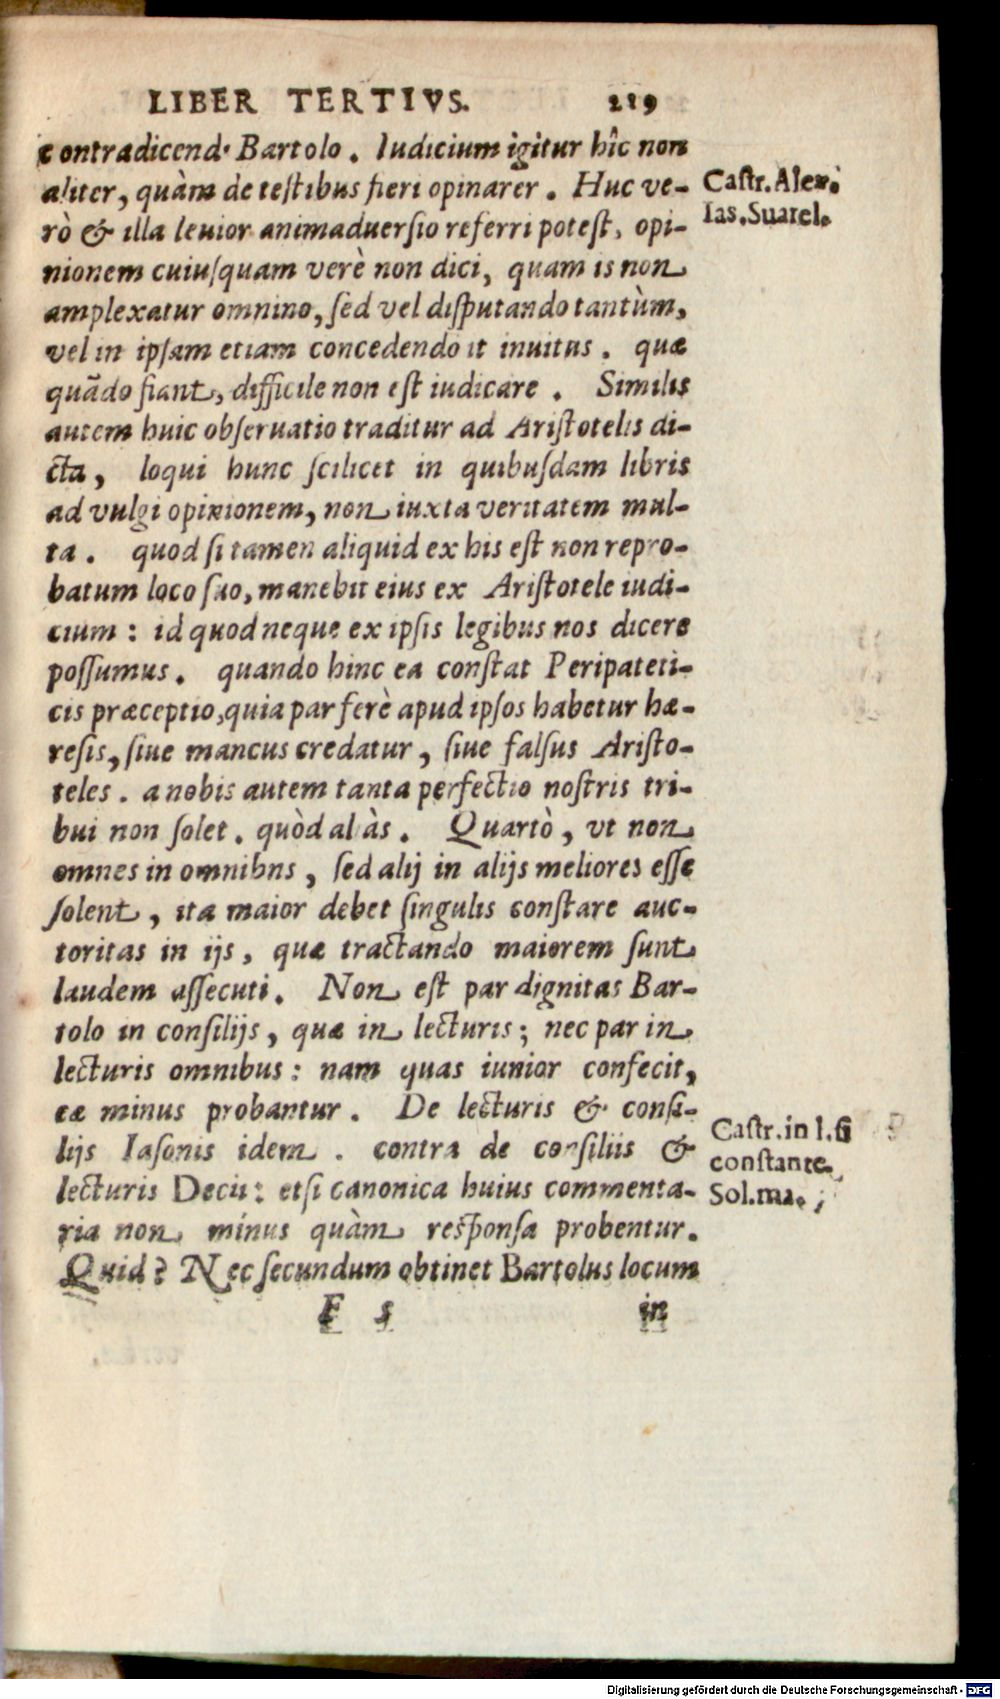 LIBER TERTIVS. 219
contradicend· Bartolo. Iudicium igitur hîc non
aliter, quàm de testibus fieri opinarer. Huc ve-
rò & illa leuior animaduersio referri potest, opi-
nionem cuiusquam verè non dici, quam is non
amplexatur omnino, sed vel disputando tantùm,
vel in ipsam etiam concedendo it inuitus. quæ
quãdo fiant, difficile non est iudicare. Similis
autem huic obseruatio traditur ad Aristotelis di-
cta, loqui hunc scilicet in quibusdam libris
ad vulgi opinionem, non iuxta veritatem mul-
ta. quod si tamen aliquid ex his est non repro-
batum loco suo, manebit eius ex Aristotele iudi-
cium: id quod neque ex ipsis legibus nos dicere
possumus. quando hinc ea constat Peripateti-
cis præceptio, quia par ferè apud ipsos habetur hæ-
resis, siue mancus credatur, siue falsus Aristo-
teles. a nobis autem tanta perfectio nostris tri-
bui non solet. quòd al às. Quartò, vt non
omnes in omnibns, sed alij in alijs meliores esse
solent, ita maior debet singulis constare auc-
toritas in ijs, quæ tractando maiorem sunt
laudem assecuti. Non est par dignitas Bar-
tolo in consilijs, quæ in lecturis; nec par in
lecturis omnibus: nam quas iunior confecit,
eæ minus probantur. De lecturis & consi-
lijs Iasonis idem. contra de consiliis &
lecturis Decii: etsi canonica huius commenta-
ria non minus quàm responsa probentur.
Quid? Nec secundum obtinet Bartolus locum
F 5 in
Castr. Alex.
Ias. Suarel.
Castr. in l. si
constante.
Sol. ma.
Digitalisierung gefördert durch die Deutsche Forschungsgemeinschaft - DFG